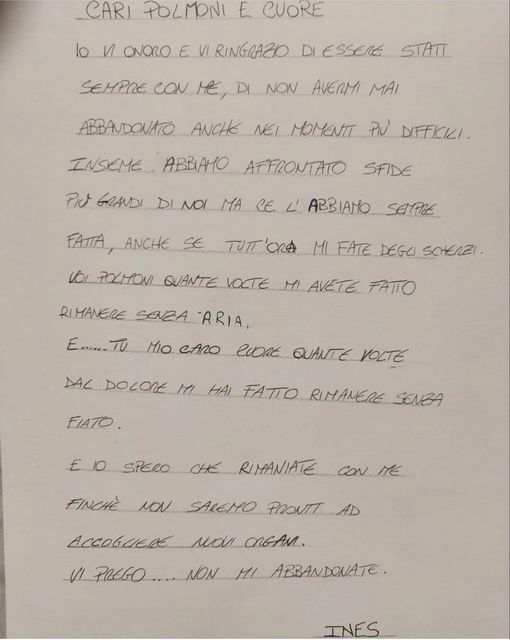 CARI POLMONI E CUORE
IO VI ONORO E VI RINGRAZIO DI ESSERE STATI
SEMPRE CON ME, DI NON AVERMI MAI
ABBANDONATO ANCHE NEI MOMENTI PIÙ DIFFICILI.
INSIEME ABBIAMO AFFRONTATO SFIDE
PIÙ GRANDI DI NOI MA CE L'ABBIAMO SEMPRE
FATTA, ANCHE SE TUTT'ORA MI FATE DEGLI SCHERZI.
VOI POLMONI QUANTE VOLTE MI AVETE FATTO
RIMANERE SENZA ARIA.
E......TU MIO CARO CUORE QUANTE VOLTE
DAL DOLORE MI HAI FATTO RIMANERE SENZA
FIATO.
E IO SPERO CHE RIMANIATE CON ME
FINCHÈ NON SAREMO PRONTI AD
ACCOGLIERE NUOVI ORGANI.
VI PREGO.... NON MI ABBANDONATE.
INES